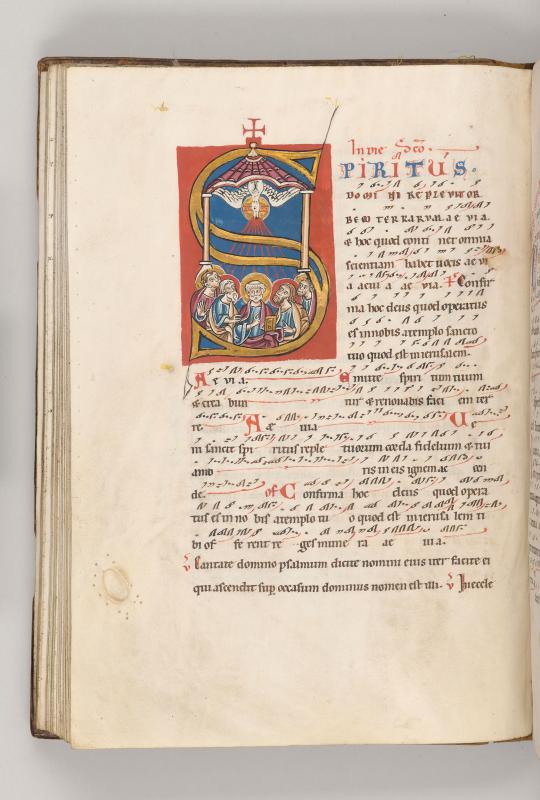 In die sc̄o
SPIRITUS
DOMINI REPLEVIT OR
BEM TERRARVM. AE VIA.
& hoc quod conti net omnia
scientiam habet uocis ae vi
a aeui a ae via. Confir
ma hoc deus quod operatus
es in nobis a templo sancto
tuo quod est in ierusalem.
Ae via. Emitte spiri tum tuum
& crea bun tur & renouabis faci em ter
re. Ae uia Ve
ni sancte spi ritus reple tuorum corda fidelium & tui
amo ris in eis ignem ac cen
de. of Confirma hoc deus quod opera
tus es in no bis a templo tu o quod est in ierusa lem ti
bi of fe rent re ges mune ra ae uia.
Cantate domino psalmum dicite nomini eius iter facite ei
qui ascendit sup occasum dominus nomen est illi. In eccle